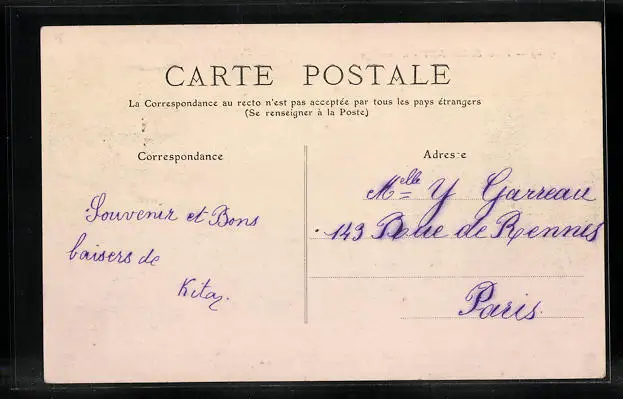 CARTE POSTALE
La Correspondance au recto n'est pas acceptée par tous les pays étrangers
(Se renseigner à la Poste)
Correspondance
Souvenir et Bons
baisers de
Adresse
Melle Y Garreau
143 Rue de Rennes
Paris.